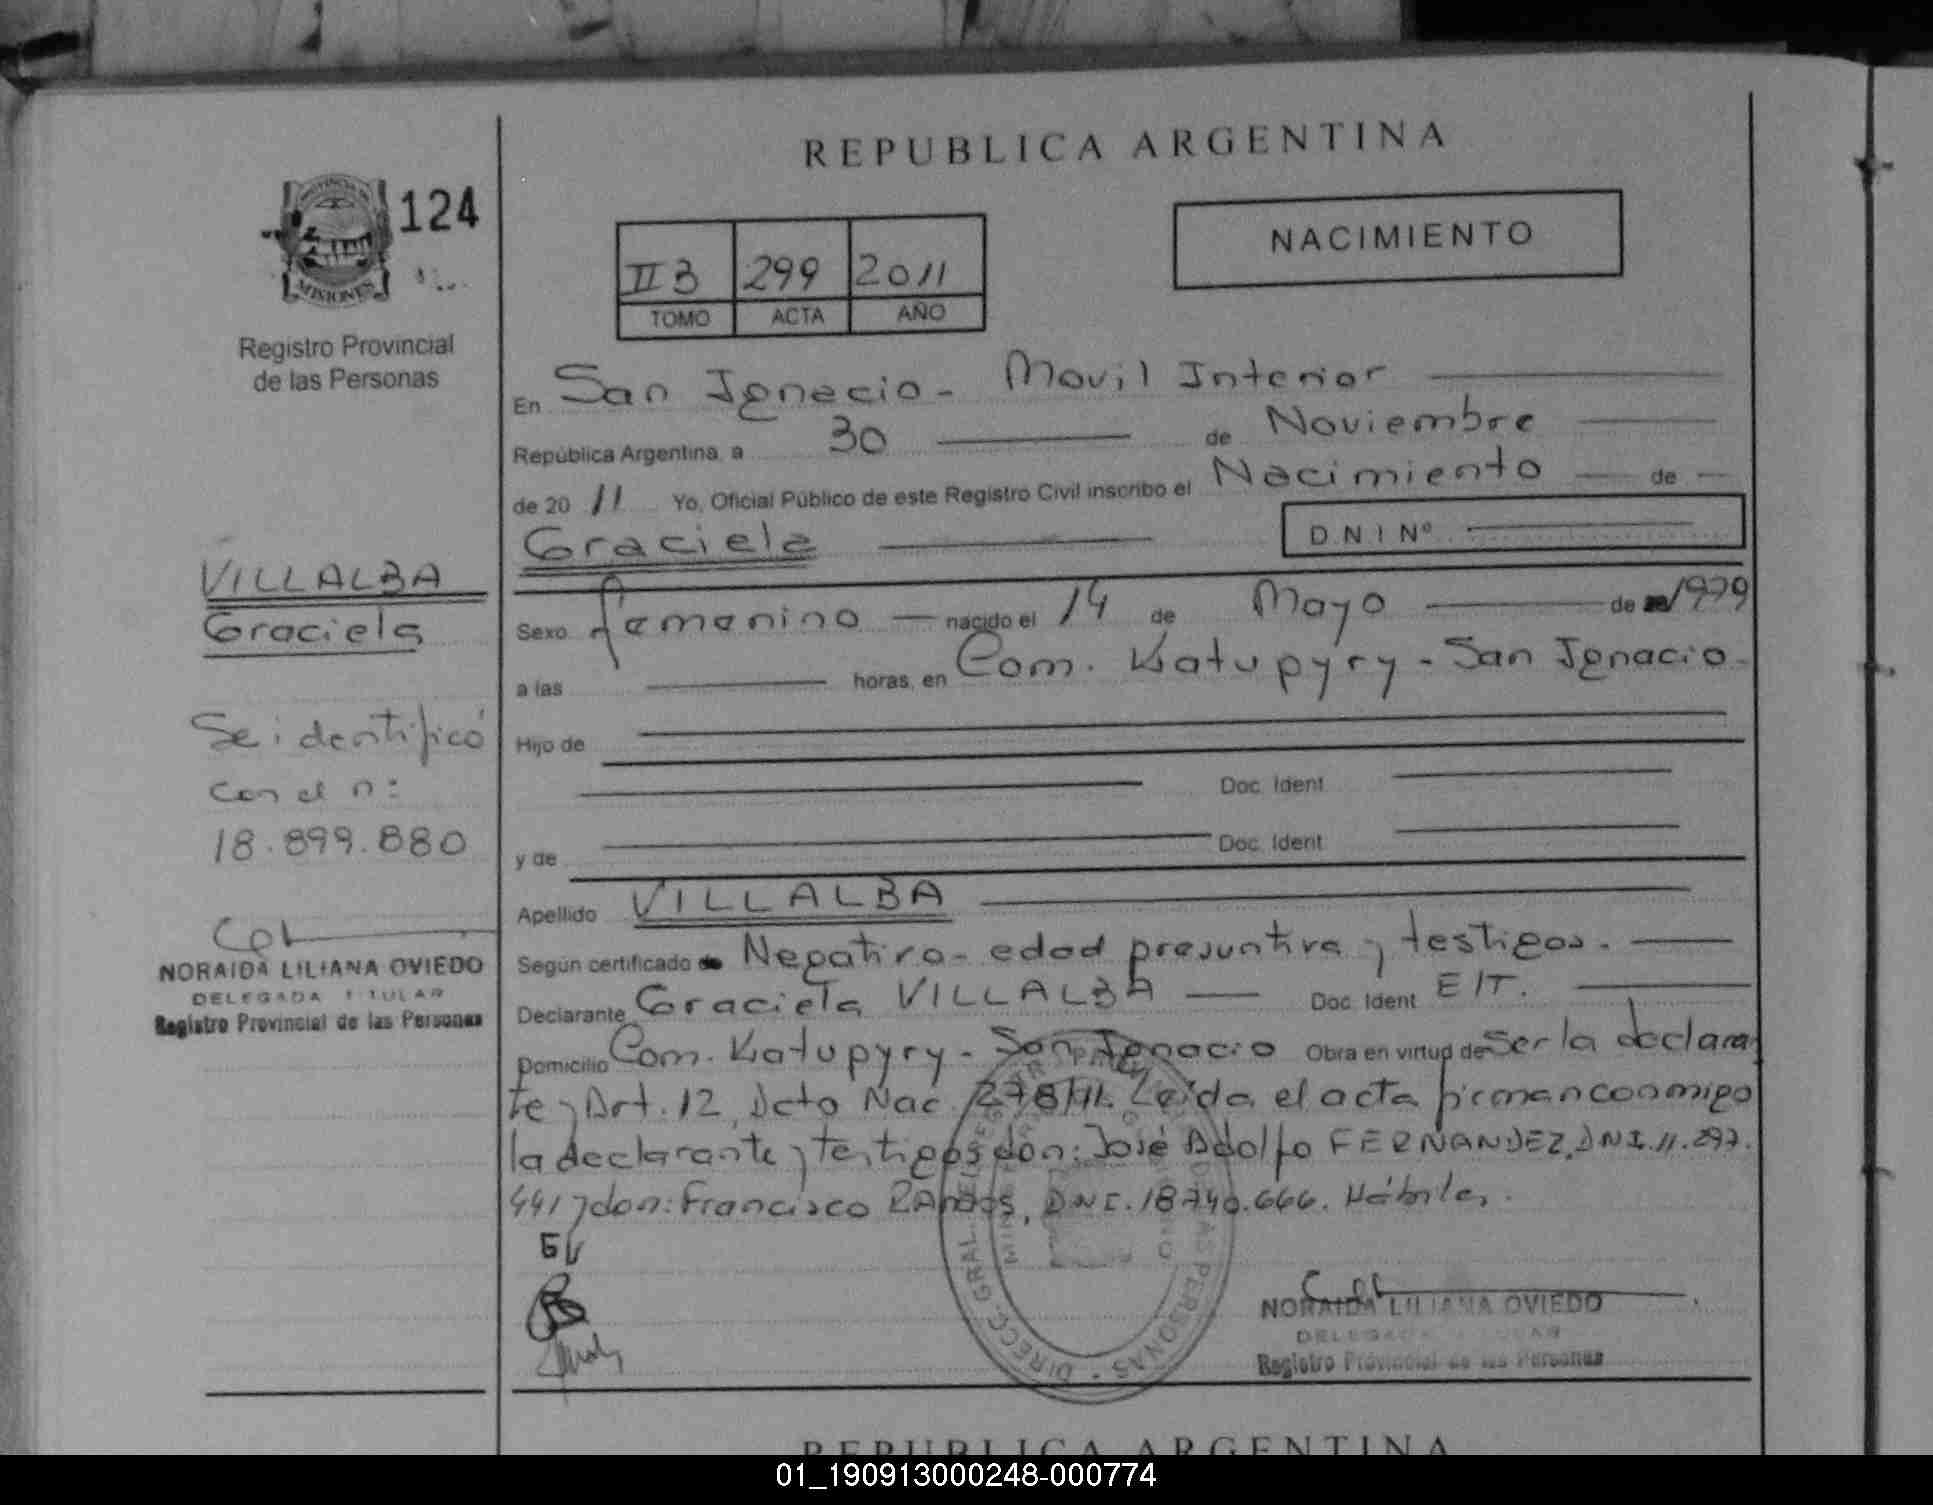 REPUBLICA ARGENTINA
124
NACIMIENTO
MISIONES
II B 299 2011
TOMO ACTA AÑO
Registro Provincial
de las Personas
En San Ignacio - Movil Interior
República Argentina, a 30 de Noviembre
de 20 11 Yo, Oficial Público de este Registro Civil inscribo el Nacimiento de
Graciela D.N.I Nº
VILLALBA
Graciela
Sexo femenino nacido el 14 de Mayo de 1979
a las horas, en Com. Katupyry - San Ignacio
Se identificó
con el n:
18.899.880
Hijo de
Doc. Ident
y de Doc. Ident
Apellido VILLALBA
Según certificado de Negativo - edad presuntiva y testigos.
Declarante Graciela VILLALBA Doc. Ident E/T.
NORAIDA LILIANA OVIEDO
DELEGADA TITULAR
Registro Provincial de las Personas
Domicilio Com. Katupyry - San Ignacio Obra en virtud de Ser la declaran
te y Art. 12, Dcto Nac. 278/11. Leída el acta firman conmigo
la declarante y testigos don: José Adolfo FERNANDEZ, DNI. 11.297.
441 y don: Francisco RAMOS, DNI. 18.740.666. Hábiles.
GV
NORAIDA LILIANA OVIEDO
DELEGADA TITULAR
Registro Provincial de las Personas
REPUBLICA ARGENTINA
01_190913000248-000774